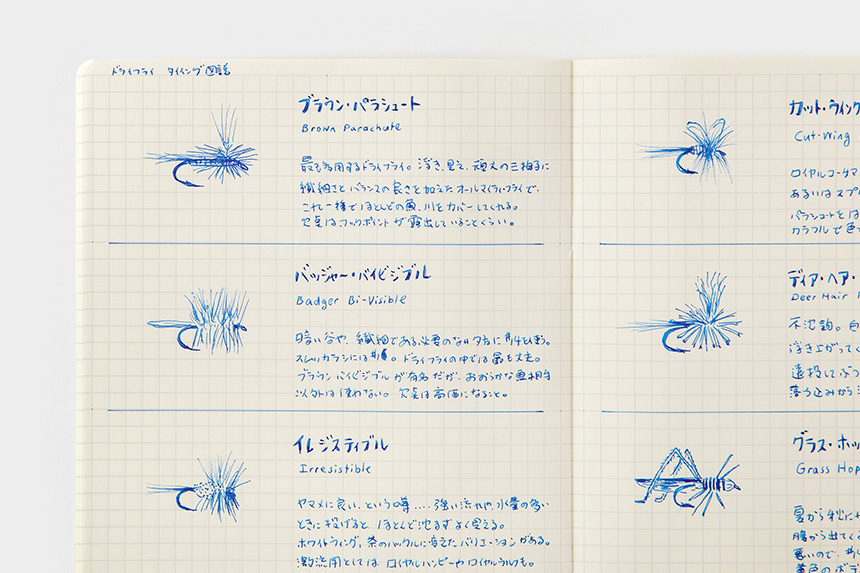 ドライフライ タイイング図譜
ブラウン・パラシュート
Brown Parachute
最も多用するドライフライ。浮き、見え、頑丈の三拍子に
繊細さとバランスの良さを加えたオールマイティフライで、
これ一種でほとんどの魚、川をカバーしてくれる。
欠点はフックポイントが露出していることくらい。
バッジャー・バイビジブル
Badger Bi-Visible
暗い谷や、繊細である必要のない夕方に#14を使う。
スレッカラシには#16。ドライフライの中では最も丈夫。
ブラウンバイビジブルが有名だが、おおらかな魚相手
以外は使わない。欠点は高価になること。
イレジスティブル
Irresistible
ヤマメに良い、という噂....強い流れや、水量の多い
ときに投げると、ほとんど沈まずよく見える。
ホワイトウィング、茶のハックルに変えたバリエーションがある。
激流用としては、ロイヤルハンピーやロイヤルウルフも。
カット・ウィング
Cut-Wing
ロイヤルコーチマ
あるいはスプ
パラシュートをは
カラフルで色っ
ディア・ヘア・
Deer Hair
不沈鉤。白
浮き上がってく
遠投してぶつ
落ち込みから
グラス・ホッ
Grass Hop
夏から秋に
腹から出てくる
悪いので、
黄色のボデ